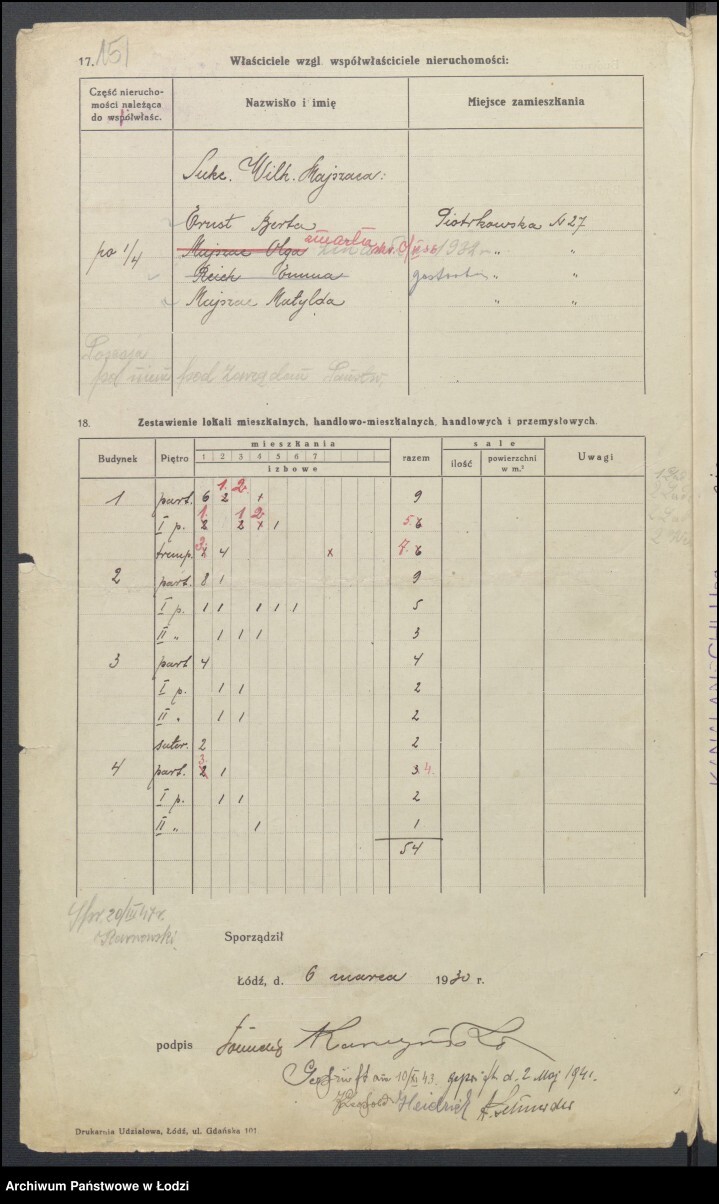 17. 151
Właściciele wzgl. współwłaściciele nieruchomości:
Część nierucho-
mości należąca
do współwłaśc.
Nazwisko i imię
Miejsce zamieszkania
Sukc. Wilh. Majszaca:
Ernst Berta Piotrkowska N 27
po 1/4 Majszac Olga zmarła 1932 „ „
Reich Emma „ „
Majszac Matylda „ „
pod Zarządem Państw.
18. Zestawienie lokali mieszkalnych, handlowo-mieszkalnych, handlowych i przemysłowych.
Budynek Piętro mieszkania razem sale Uwagi
1 2 3 4 5 6 7
izbowe
ilość powierzchni
w m.²
1. 2
1 part. 6 2 x 9
1. 1 2
I p. 2 2 x 1 5. 6
3.
4 x 7. 6
2 part. 8 1 9
I p. 1 1 1 1 1 5
II „ 1 1 1 3
3 part 4 4
I p. 1 1 2
II „ 1 1 2
suter. 2 2
3.
4 part. 2 1 3. 4.
I p. 1 1 2
II „ 1 1
54
Spr. 29/III 47 r.
Sporządził
Łódź, d. 6 marca 1930 r.
podpis
Geprüft am 10/XI 43. geprüft d. 2 Maj 1941.
Heidrich
Drukarnia Udziałowa, Łódź, ul. Gdańska 101
Archiwum Państwowe w Łodzi